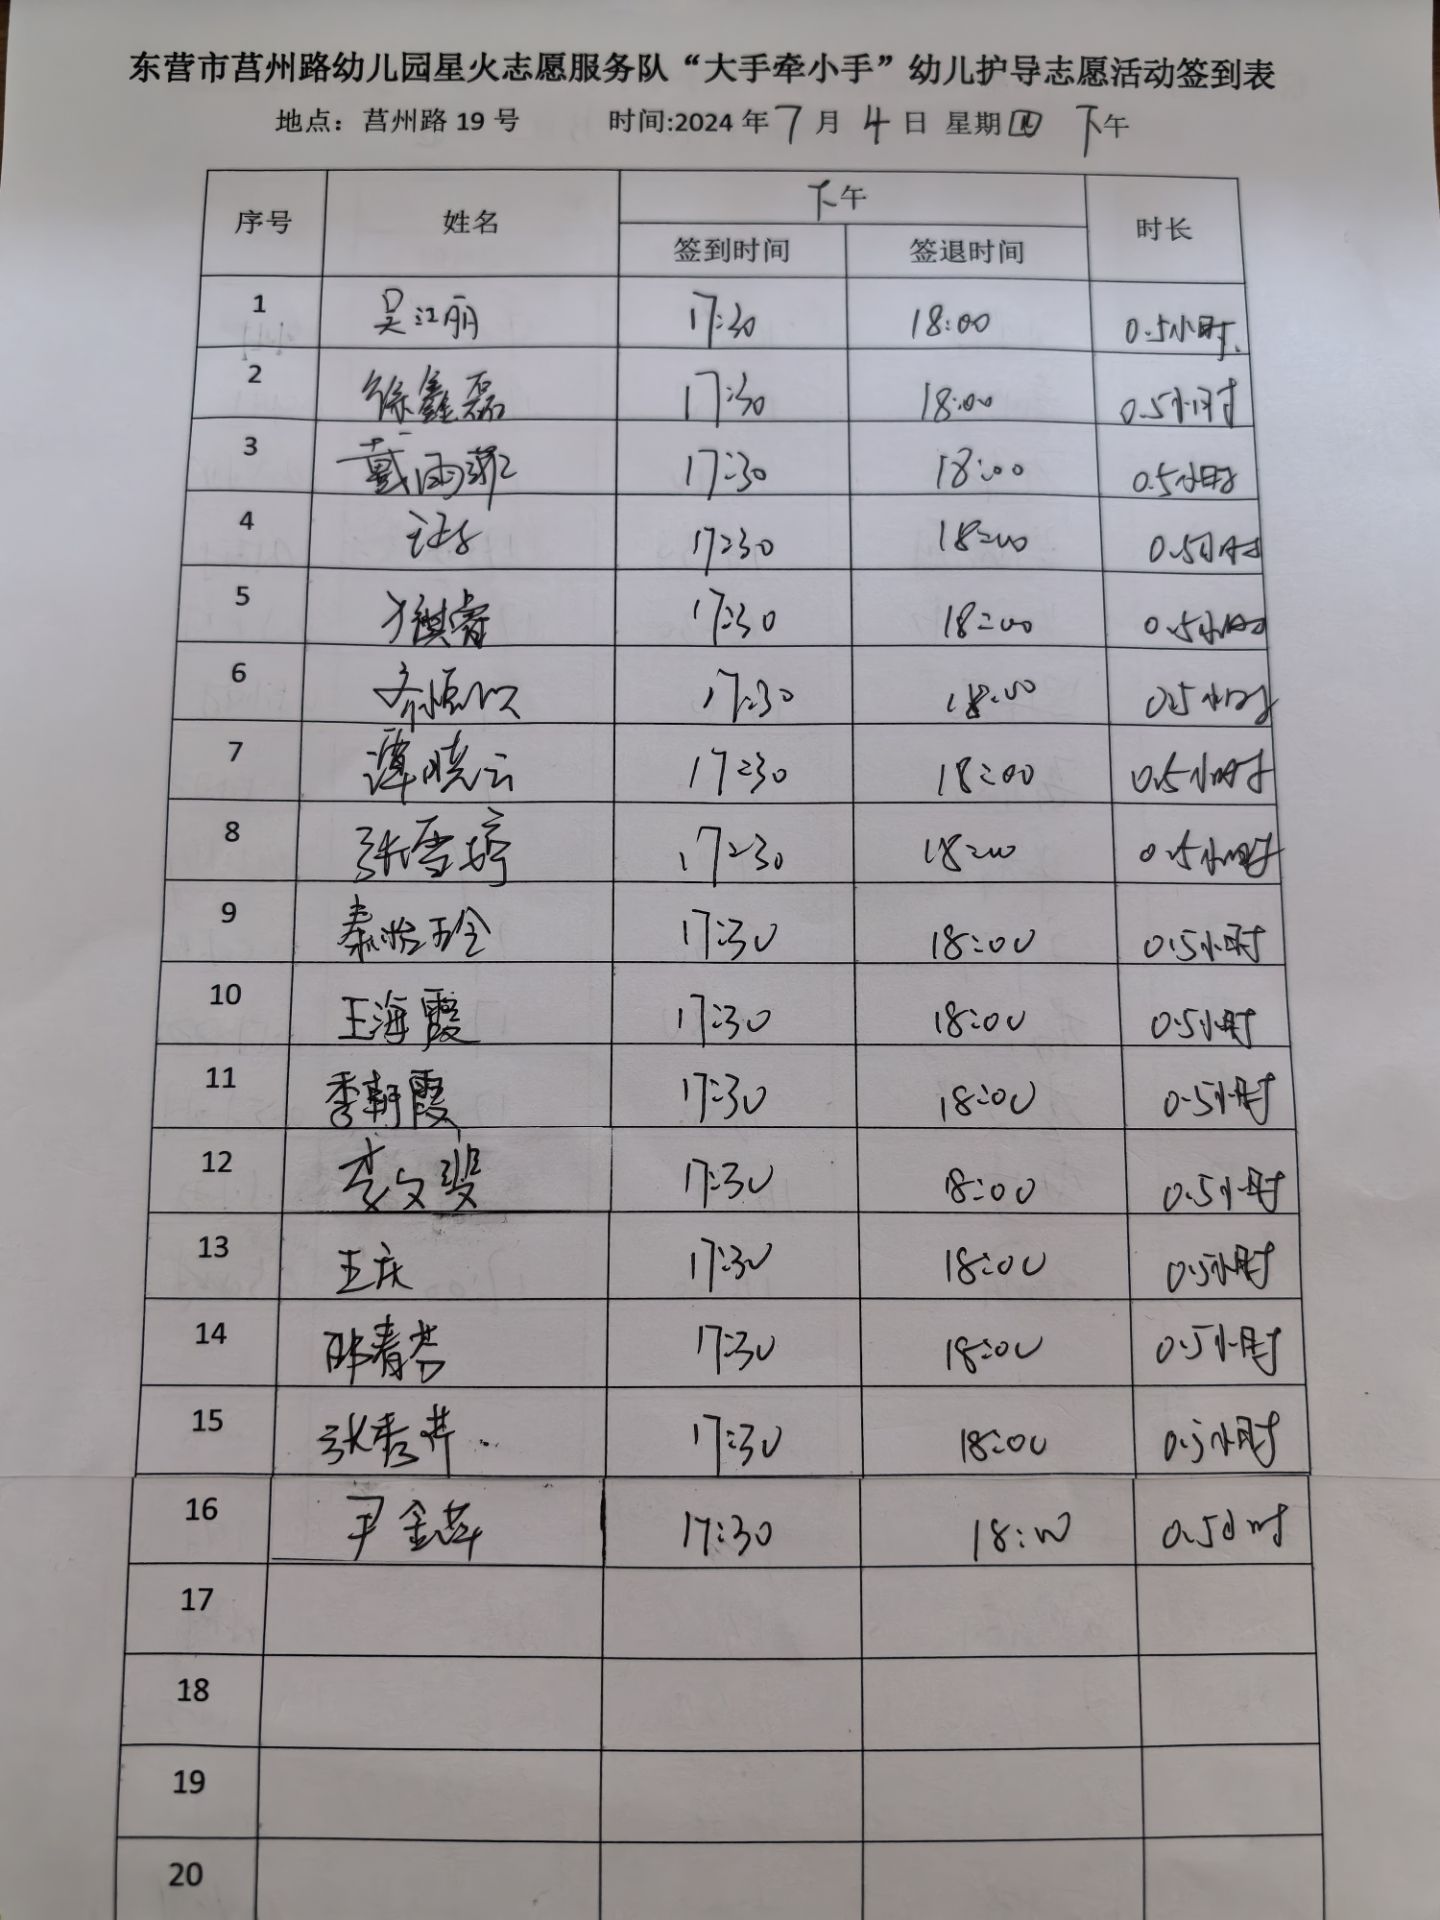 东营市莒州路幼儿园星火志愿服务队“大手牵小手”幼儿护导志愿活动签到表
地点：莒州路 19 号 时间:2024 年 7 月 4 日 星期四 下午
序号 姓名 下午 时长
签到时间 签退时间
1 吴江丽 17:30 18:00 0.5小时
2 徐鑫磊 17:30 18:00 0.5小时
3 戴雨菲 17:30 18:00 0.5小时
4 17:30 18:00 0.5小时
5 17:30 18:00 0.5小时
6 17:30 18:00 0.5小时
7 谭晓云 17:30 18:00 0.5小时
8 张雪婷 17:30 18:00 0.5小时
9 秦怡玲 17:30 18:00 0.5小时
10 王海霞 17:30 18:00 0.5小时
11 李朝霞 17:30 18:00 0.5小时
12 李文斐 17:30 18:00 0.5小时
13 王庆 17:30 18:00 0.5小时
14 17:30 18:00 0.5小时
15 17:30 18:00 0.5小时
16 尹金萍 17:30 18:00 0.5小时
17
18
19
20